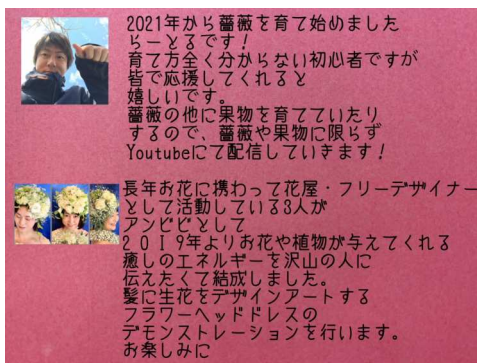 2021年から薔薇を育て始めました
らーとるです!
育て方全く分からない初心者ですが
皆で応援してくれると
嬉しいです。
薔薇の他に果物を育てていたり
するので、薔薇や果物に限らず
Youtubeにて配信していきます!
長年お花に携わって花屋・フリーデザイナー
として活動している3人が
アンビビとして
2019年よりお花や植物が与えてくれる
癒しのエネルギーを沢山の人に
伝えたくて結成しました。
髪に生花をデザインアートする
フラワーヘッドドレスの
デモンストレーションを行います。
お楽しみに